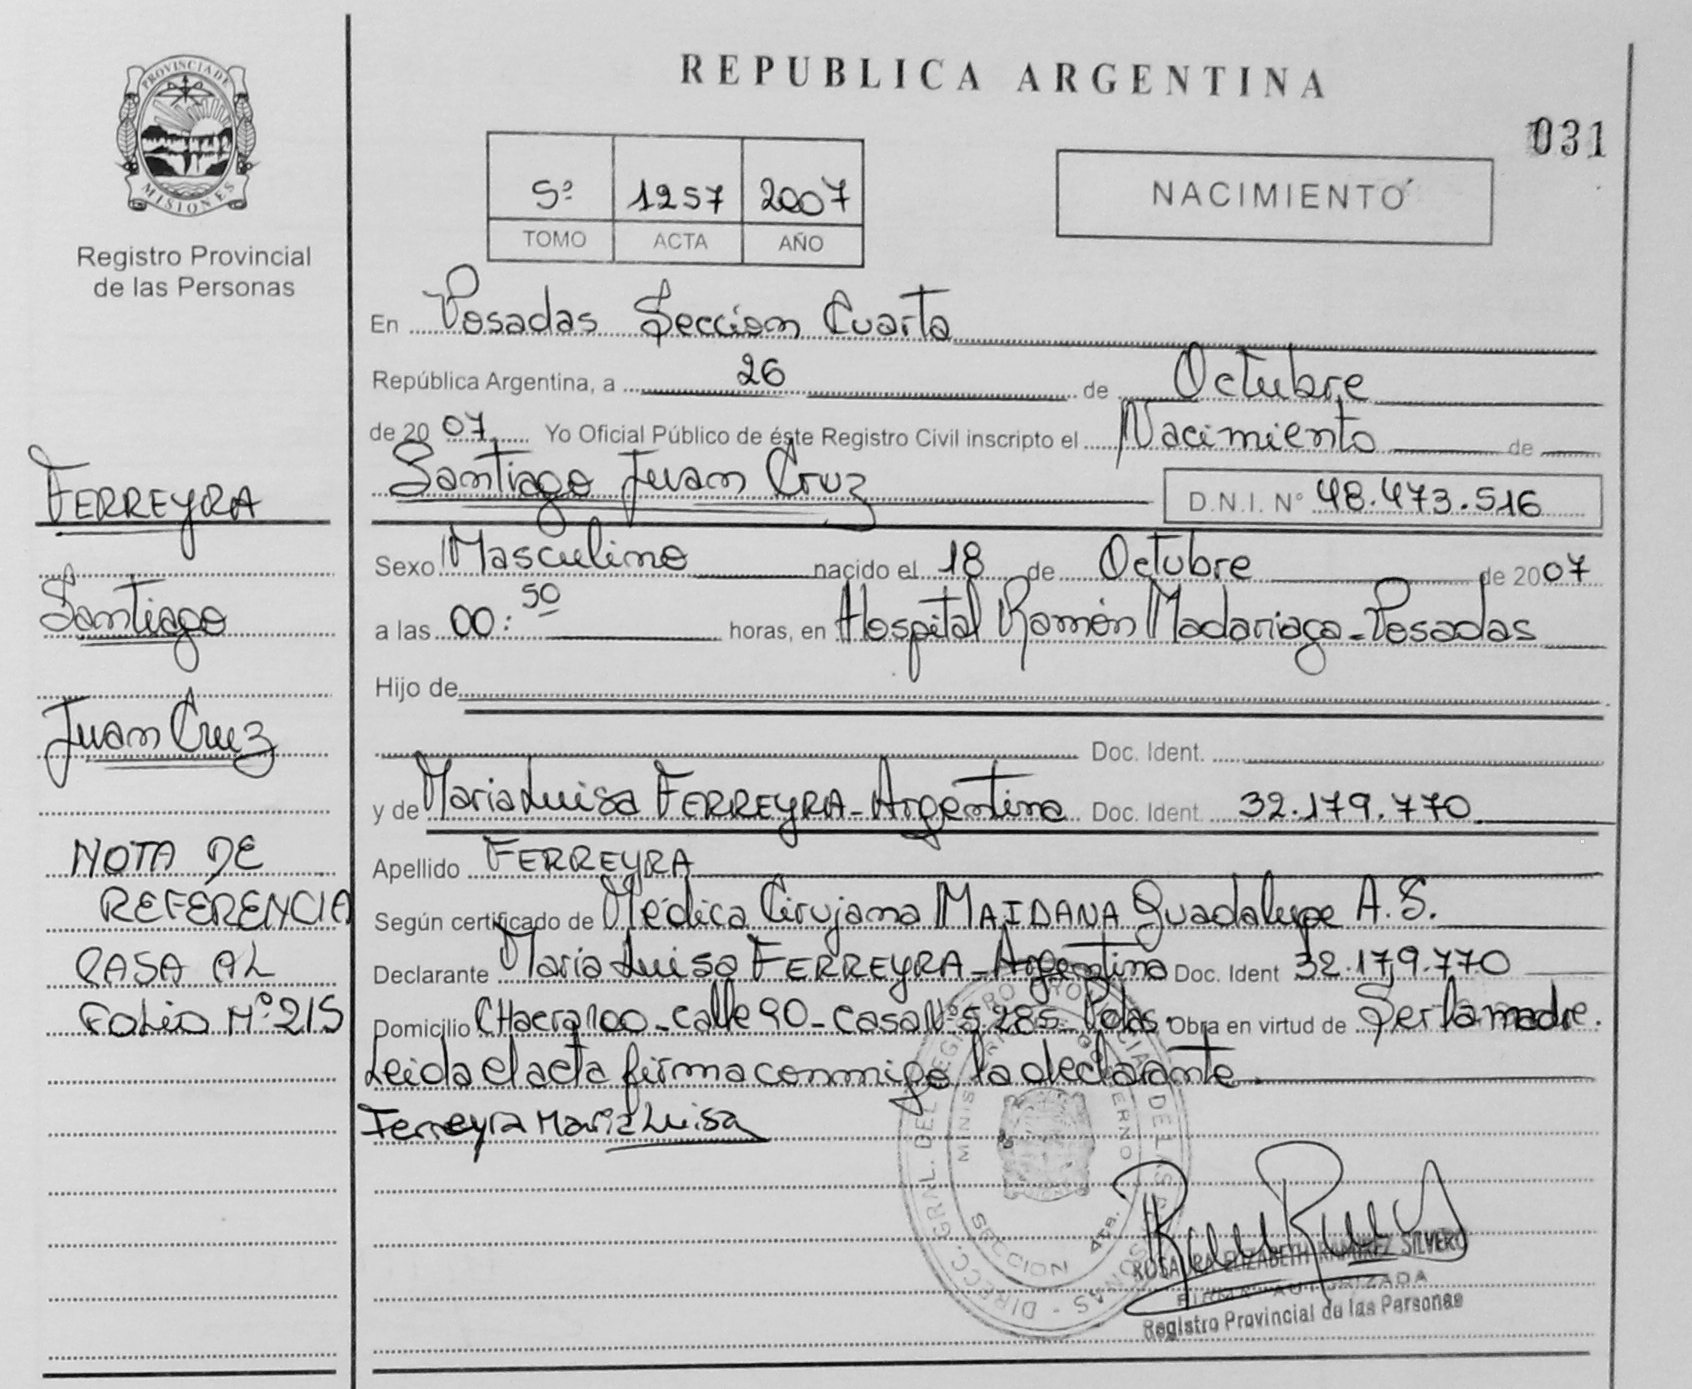 PROVINCIA DE
MISIONES
Registro Provincial
de las Personas
FERREYRA
Santiago
Juan Cruz
NOTA DE
REFERENCIA
PASA AL
FOLIO Nº 215
REPUBLICA ARGENTINA
031
5º 1257 2007
TOMO ACTA AÑO
NACIMIENTO
En Posadas Seccion Cuarta
República Argentina, a 26 de Octubre
de 2007 Yo Oficial Público de éste Registro Civil inscripto el Nacimiento de
Santiago Juan Cruz D.N.I. Nº 48.473.516
Sexo Masculino nacido el 18 de Octubre de 2007
a las 00:50 horas, en Hospital Ramón Madariaga - Posadas
Hijo de
Doc. Ident.
y de Maria Luisa FERREYRA - Argentina Doc. Ident. 32.179.770
Apellido FERREYRA
Según certificado de Médica Cirujana MAIDANA Guadalupe A. S.
Declarante Maria Luisa FERREYRA - Argentina Doc. Ident 32.179.770
Domicilio CHacra 100 - calle 90 - casa Nº 5.285 - Pdas. Obra en virtud de Ser la madre.
Leida el acta firma conmigo la declarante.
Ferreyra Maria Luisa
DIRECC. GRAL. DEL REGISTRO PROVINCIAL DE LAS PERSONAS
SECCION 4ta.
ROSAURA ELIZABETH RAMIREZ SILVERO
FIRMA AUTORIZADA
Registro Provincial de las Personas